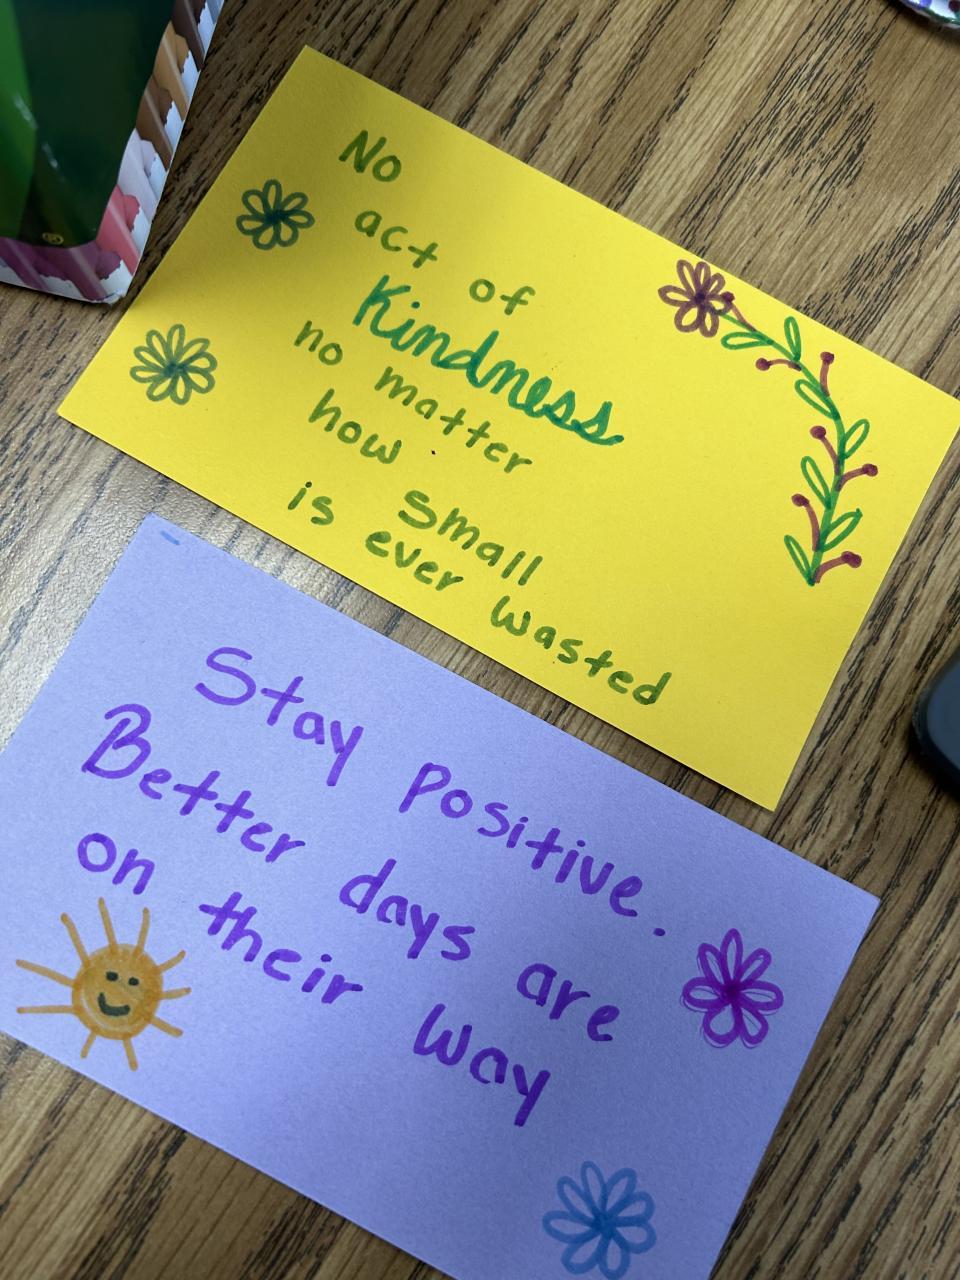 No
act of
Kindness
no matter
how small
is ever wasted
Stay positive.
Better days are
on their way
®